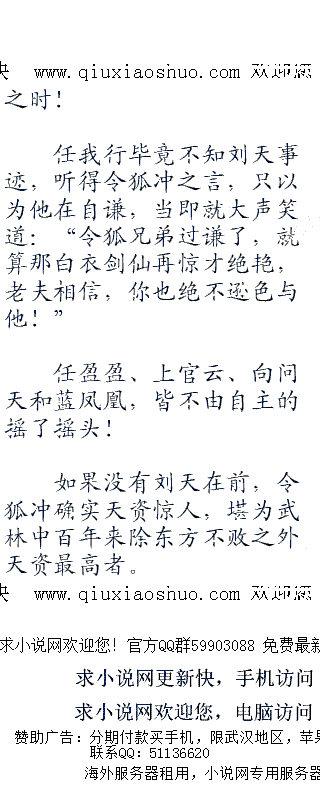 快 www.qiuxiaoshuo.com 欢迎您
之时！
任我行毕竟不知刘天事
迹，听得令狐冲之言，只以
为他在自谦，当即就大声笑
道：“令狐兄弟过谦了，就
算那白衣剑仙再惊才绝艳，
老夫相信，你也绝不逊色与
他！”
任盈盈、上官云、向问
天和蓝凤凰，皆不由自主的
摇了摇头！
如果没有刘天在前，令
狐冲确实天资惊人，堪为武
林中百年来除东方不败之外
天资最高者。
快 www.qiuxiaoshuo.com 欢迎您
求小说网欢迎您！官方QQ群59903088 免费最新
求小说网更新快，手机访问
求小说网欢迎您，电脑访问
赞助广告：分期付款买手机，限武汉地区，苹果
联系QQ：51136620
海外服务器租用，小说网专用服务器